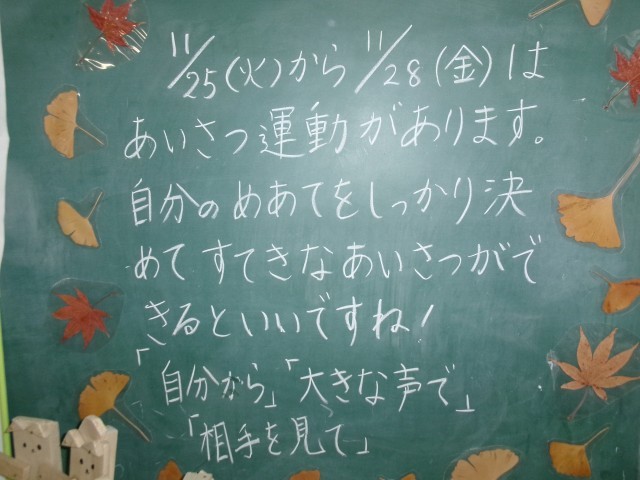 11/25(火)から11/28(金)は
あいさつ運動があります。
自分のめあてをしっかり決
めてすてきなあいさつがで
きるといいですね!
「自分から」「大きな声で」
「相手を見て」